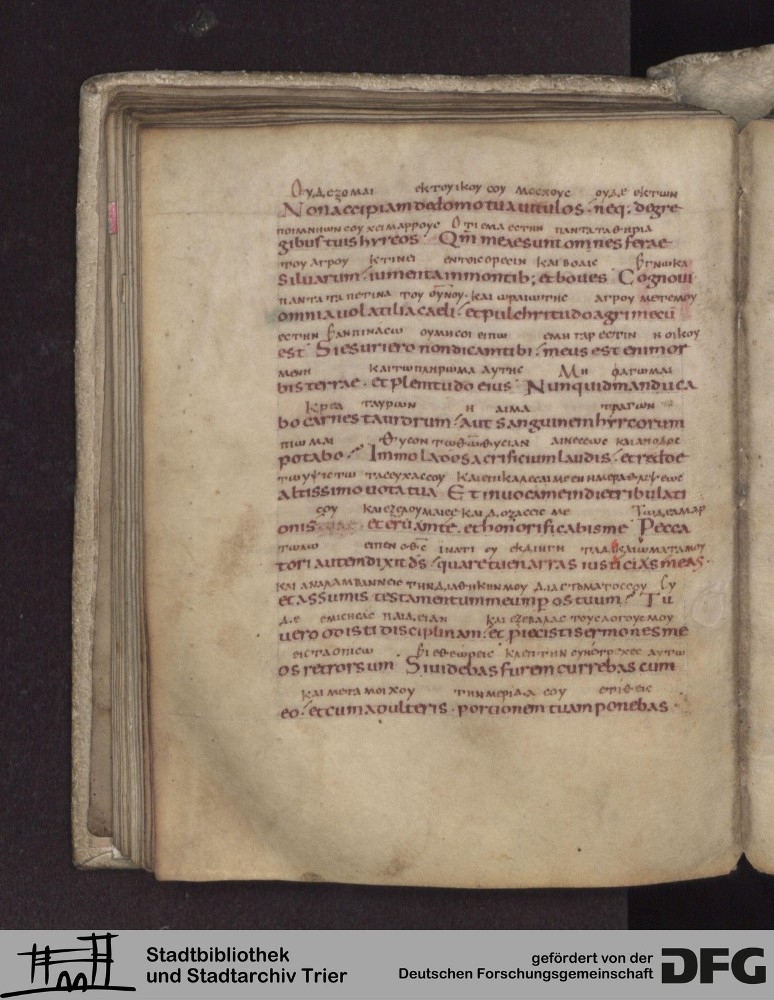 Ουδεξομαι εκτουικου σου μοσχους ουδε εκτων
Non accipiam de domo tua vitulos · neq; degre
ποιμνιων σου χειμαρρους Οτι εμα εστην παντα τα θηρια
gibus tuis hyrcos · Qm̄ meae sunt omnes ferae
του αγρου κτινει εντοις ορεσιν και βοαις Εγνωκα
silvarum · iumenta in montib; et boves · Cognovi
παντα τα πετινα του ουνου · και ωραιωτης αγρου μετεμου
omnia volatilia caeli · et pulchritudo agri mecū
εστην Εαν πινασω ουμη σοι ειπω εμη γαρ εστιν η οικου
est · Si esuriero non dicam tibi · meus est enim or
μενη και τω πληρωμα αυτης Μη φαγωμαι
bis terrae · et plenitudo eius · Nunquid manduca
κρεα ταυρων η αιμα τραγων
bo carnes taurorum · aut sanguinem hyrcorum
πιωμαι Θυσον τω θω θυσιαν αινεσεως και αποδος
potabo · Immola do sacrificium laudis · et redde
τω υψιστω τας ευχας σου Και επικαλεσαι με εν ημερα θλιψεως
altissimo vota tua · Et invoca me in die tribulati
σου και εξελουμαι σε και δοξασεις με Τω δε αμαρ
onis · et erūam te · et honorificabis me · Pecca
τωλω ειπεν ο θς ινατι συ εκδιηγη τα δικαιωματα μου
tori autem dixit ds̄ · quare tu enarras iusticias meas ·
και αναλαμβανεις την διαθηκην μου δια στωματος σου Συ
et assumis testamentum meum p os tuum · Tu
δε εμισησας παιδειαν και εξεβαλας τους λογους μου
vero odisti disciplinam · et proiecisti sermones me
εις τα οπισω Ει εθεωρεις κλεπτην συνετρεχες αυτω
os retrorsum · Si videbas furem currebas cum
και μετα μοιχου την μεριδα σου ετιθεις
eo · et cum adulteris · portionem tuam ponebas ·
Stadtbibliothek
und Stadtarchiv Trier
gefördert von der
Deutschen Forschungsgemeinschaft
DFG